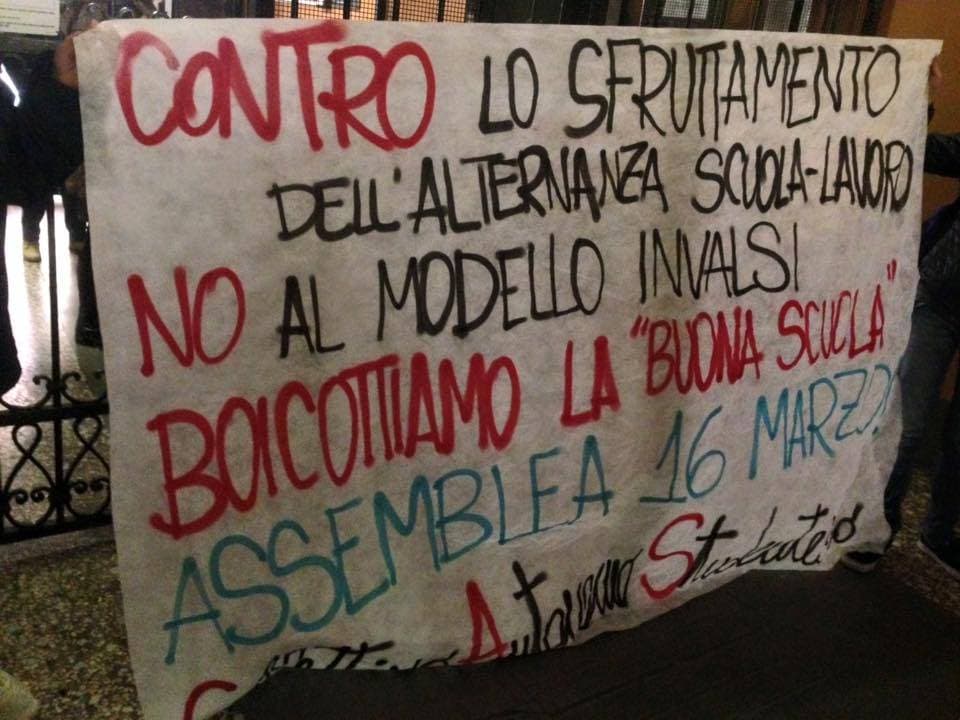 CONTRO LO SFRUTTAMENTO
DELL'ALTERNANZA SCUOLA-LAVORO
NO AL MODELLO INVALSI
BOICOTTIAMO LA "BUONA SCUOLA"
ASSEMBLEA 16 MARZO!
Collettivo Autonomo Studentesco